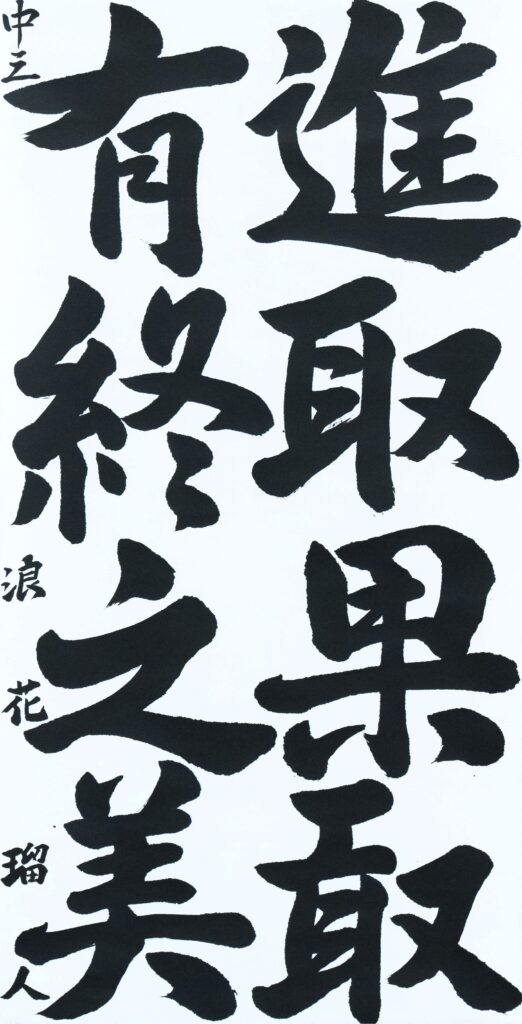 進取果敢
有終之美
中三 浪花瑠人